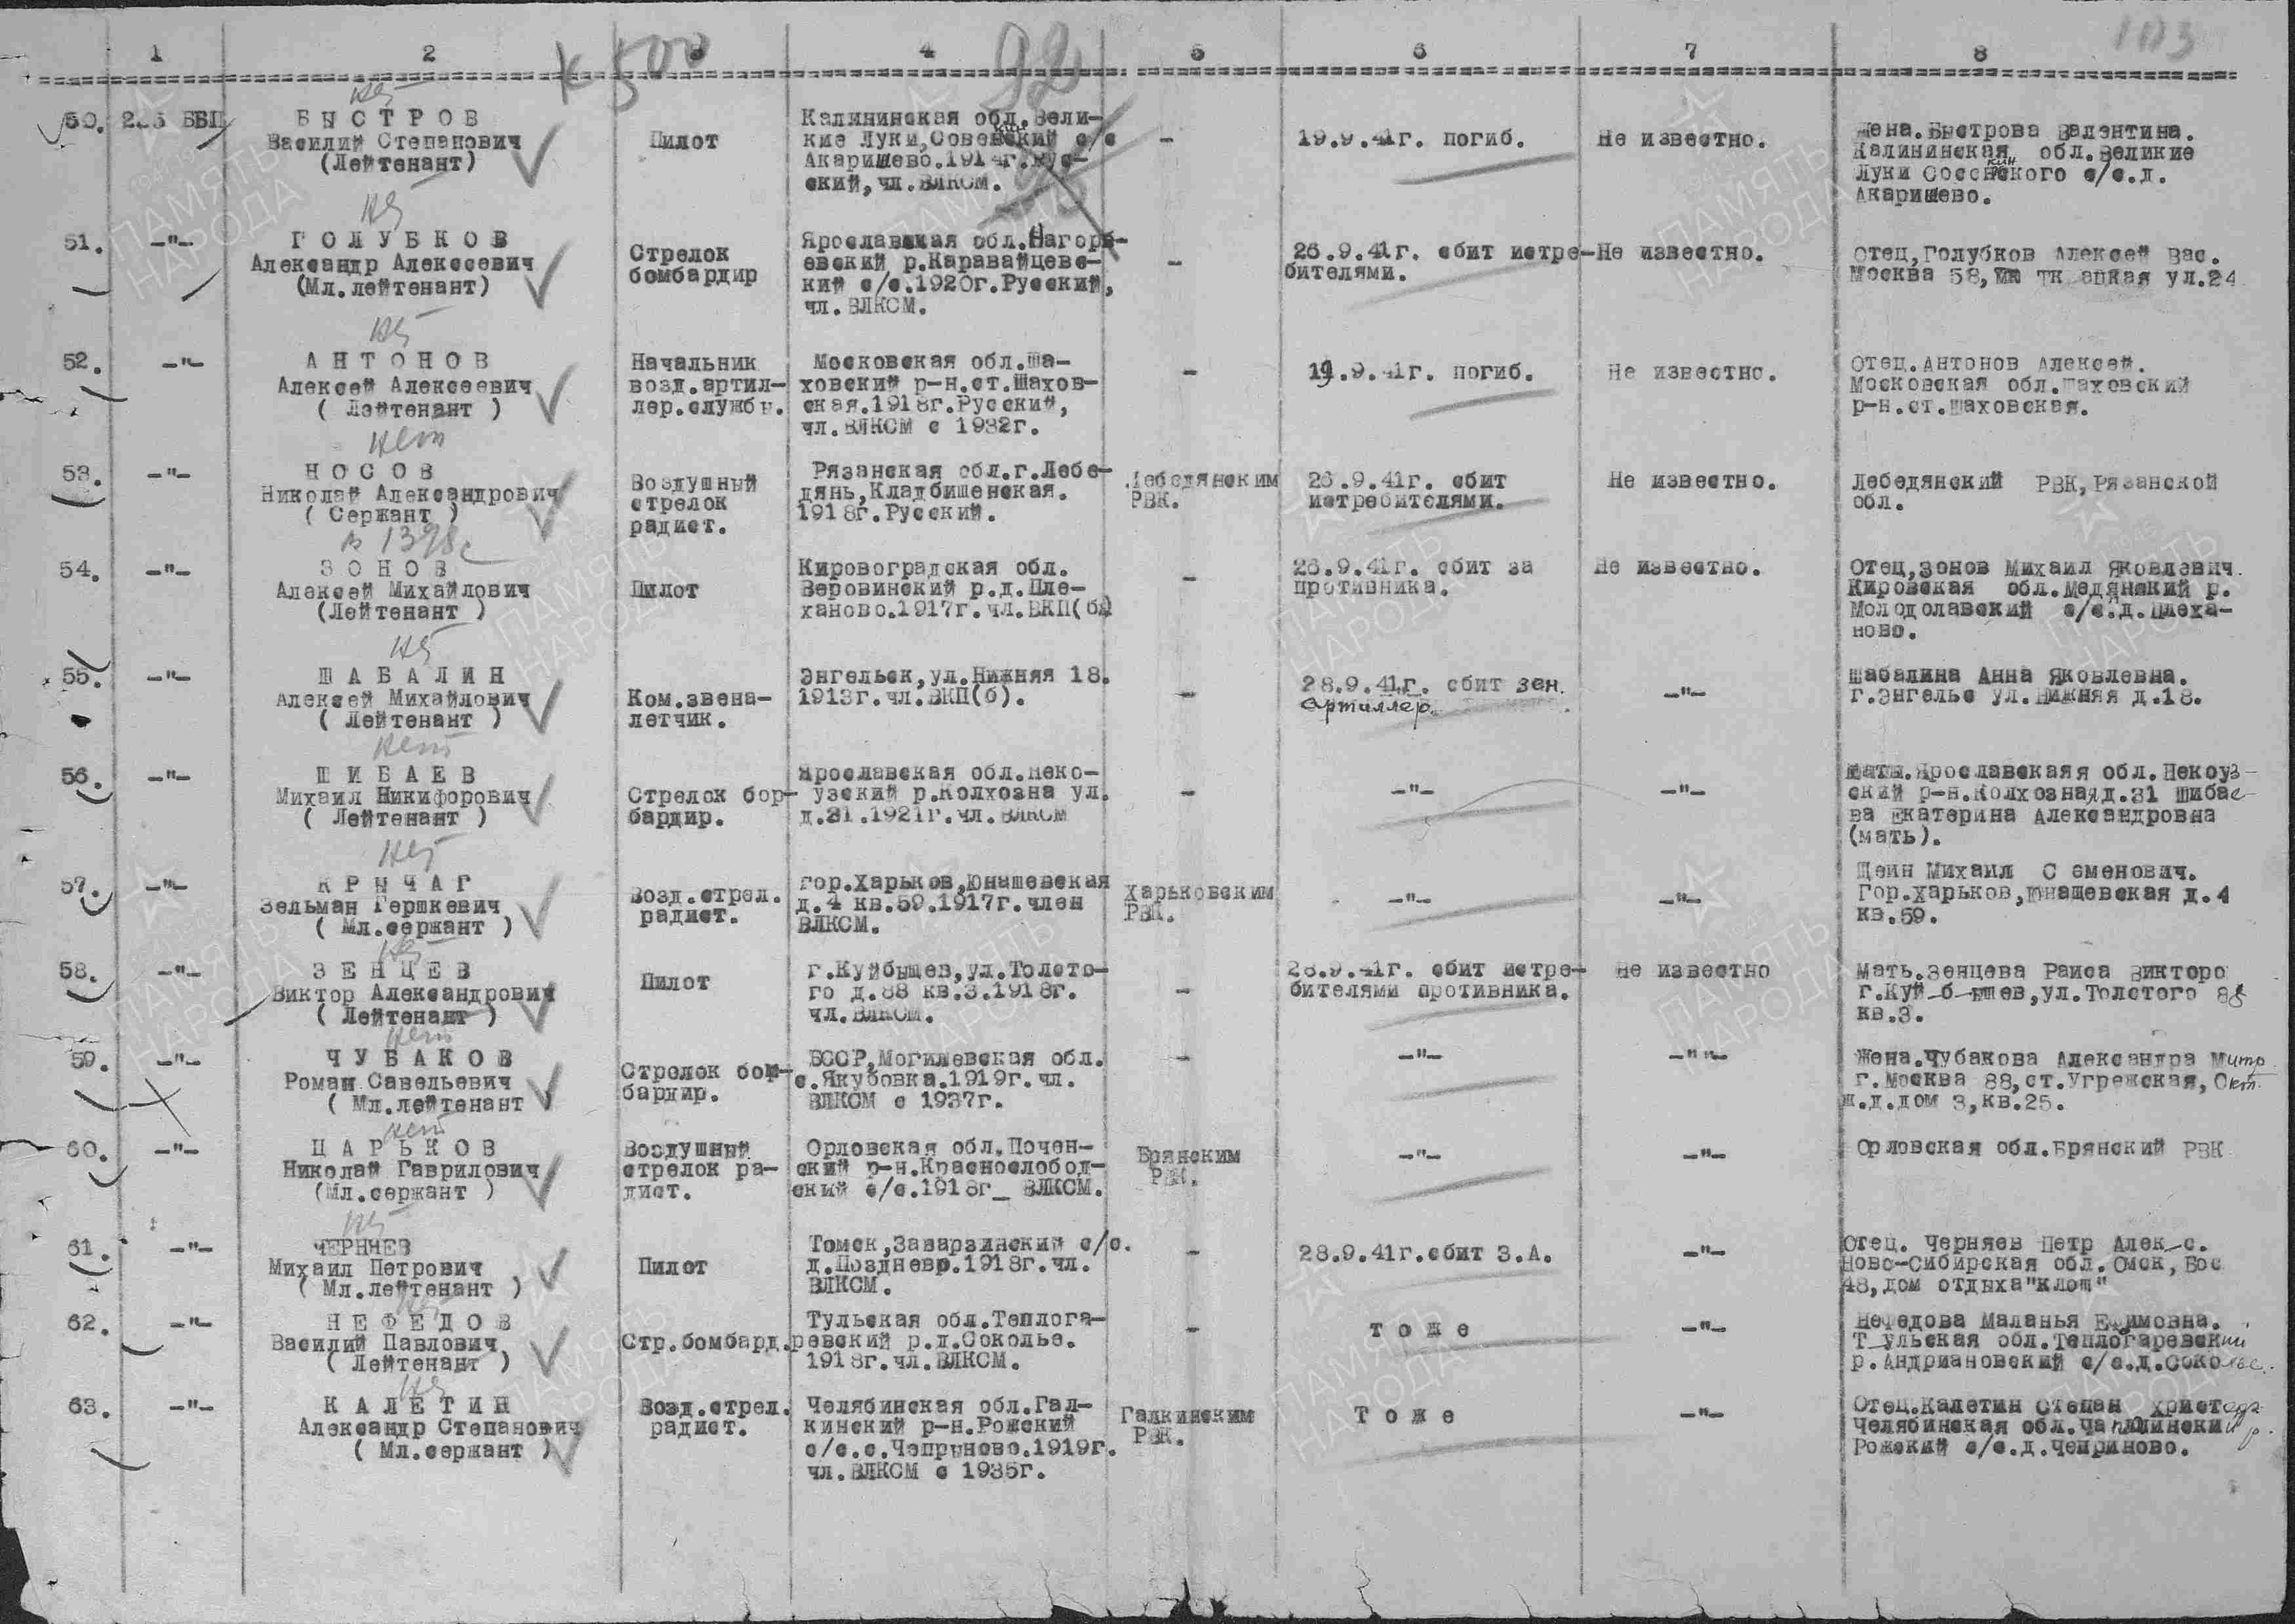 1 2 3 4 5 6 7 8
К 500
92
103
нет
50. ББП
БЫСТРОВ
Василий Степанович
(Лейтенант)
Пилот
Калининская обл. Вели-
кие Луки, с/с
Акаришево. 1914г. Рус-
ский, чл. ВЛКСМ.
-
19.9.41г. погиб.
Не известно.
Жена. Быстрова Валентина.
Калининская обл. Великие
Луки с/с.д.
Акаришево.
нет
51. -"-
ГОЛУБКОВ
Александр Алексеевич
(Мл.лейтенант)
Стрелок
бомбардир
Ярославская обл. Нагорь-
евский р. Каравайцевс-
кий с/с. 1920г. Русский,
чл. ВЛКСМ.
-
26.9.41г. сбит истре-
бителями.
Не известно.
Отец, Голубков Алексей Вас.
Москва 58, ул.24
нет
52. -"-
АНТОНОВ
Алексей Алексеевич
( Лейтенант )
Начальник
возд.артил-
лер.службы.
Московская обл. Ша-
ховский р-н. ст. Шахов-
ская. 1918г. Русский,
чл. ВЛКСМ с 1932г.
-
19.9.41г. погиб.
Не известно.
Отец. Антонов Алексей.
Московская обл. Шаховский
р-н. ст. Шаховская.
нет
53. -"-
НОСОВ
Николай Александрович
( Сержант )
Воздушный
стрелок
радист.
Рязанская обл. г. Лебе-
дянь, Кладбищенская.
1918г. Русский.
Лебедянским
РВК.
26.9.41г. сбит
истребителями.
Не известно.
Лебедянский РВК, Рязанской
обл.
в 1398с
54. -"-
ЗОНОВ
Алексей Михайлович
(Лейтенант )
Пилот
Кировоградская обл.
Веровинский р.д. Пле-
ханово. 1917г. чл. ВКП(б)
-
26.9.41г. сбит за
противника.
Не известно.
Отец, Зонов Михаил Яковлевич.
Кировская обл. Медянский р.
Молодолавский с/с.д. Плеха-
ново.
нет
55. -"-
ШАБАЛИН
Алексей Михайлович
( Лейтенант )
Ком.звена-
летчик.
Энгельск, ул. Нижняя 18.
1913г. чл. ВКП(б).
-
28.9.41г. сбит зен.
артиллер.
-"-
Шабалина Анна Яковлевна.
г. Энгельс ул. Нижняя д.18.
нет
56. -"-
ШИБАЕВ
Михаил Никифорович
( Лейтенант )
Стрелок бор-
бардир.
Ярославская обл. Неко-
узский р. Колхозна ул.
д.31. 1921г. чл. ВЛКСМ
-
-"-
-"-
Мать. Ярославскаяя обл. Некоуз-
ский р-н. Колхозная д.31 Шибае-
ва Екатерина Александровна
(мать).
нет
57. -"-
КРЫЧАГ
Зельман Гершкевич
( Мл.сержант )
Возд.стрел.
радист.
гор. Харьков, Юнашевская
д.4 кв.59. 1917г. член
ВЛКСМ.
Харьковским
РВК.
-"-
-"-
Щеин Михаил Семенович.
Гор. Харьков, Юнашевская д.4
кв.59.
нет
58. -"-
ЗЕНЦЕВ
Виктор Александрович
( Лейтенант )
Пилот
г. Куйбышев, ул. Толсто-
го д.88 кв.3. 1918г.
чл. ВЛКСМ.
-
28.9.41г. сбит истре-
бителями противника.
Не известно
Мать. Зенцева Раиса Викторо
г. Куй-б-ышев, ул. Толстого 88
кв.3.
нет
59. -"-
ЧУБАКОВ
Роман Савельевич
( Мл.лейтенант )
Стрелок бом-
бардир.
БССР, Могилевская обл.
с. Якубовка. 1919г. чл.
ВЛКСМ с 1937г.
-
-"-
-""-
Жена. Чубакова Александра Митр.
г. Москва 88, ст. Угрежская, Окт.
ж.д. дом 3, кв.25.
нет
60. -"-
ЦАРЬКОВ
Николай Гаврилович
(Мл.сержант )
Воздушный
стрелок ра-
дист.
Орловская обл. Почен-
ский р-н. Краснослобод-
ский с/с. 1918г_ ВЛКСМ.
Брянским
РВК.
-"-
-"-
Орловская обл. Брянский РВК
нет
61. -"-
ЧЕРНЯЕВ
Михаил Петрович
( Мл.лейтенант )
Пилот
Томск, Заварзинский с/с.
д. Позднево. 1918г. чл.
ВЛКСМ.
-
28.9.41г. сбит З.А.
-"-
Отец. Черняев Петр Алек-с.
Ново-Сибирская обл. Омск,
48, дом отдыха "Ключ"
нет
62. -"-
НЕФЕДОВ
Василий Павлович
( Лейтенант )
Стр.бомбард.
Тульская обл. Теплога-
ревский р.д. Соколье.
1918г. чл. ВЛКСМ.
-
тоже
-"-
Нефедова Маланья Ефимовна.
Т_ульская обл. Теплогаревский
р. Андриановский с/с.д. Соколье.
нет
63. -"-
КАЛЕТИН
Александр Степанович
( Мл.сержант )
Возд.стрел.
радист.
Челябинская обл. Гал-
кинский р-н. Рожский
с/с.с. Чепрыново. 1919г.
чл. ВЛКСМ с 1935г.
Галкинским
РВК.
Тоже
-"-
Отец. Калетин Степан
Челябинская обл.
Рожский с/с.д. Чеприново.
ПАМЯТЬ
НАРОДА